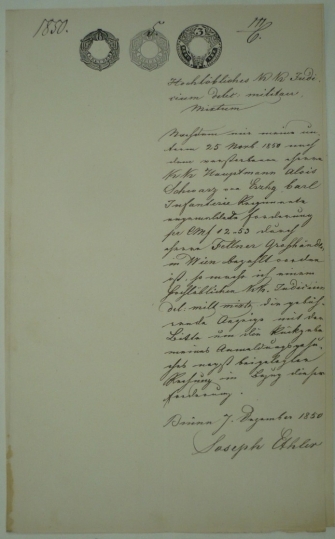 1850.
3
Hochlöbliches K K Judi-
cium deleg. militare
Mixtum
Nachdem mir meine un-
term 25 Novb 1850 nach
dem verstorbenen Herrn
K K Hauptmann Alois
Schwarz von Erzhg Carl
Infanterie Regimente
angemeldete Forderung
pr CMf 12-53 durch
Herrn Fellner Großhändl.
in Wien bezahlt worden
ist, so mache ich einem
Hochlöblichen K K Judicium
del. mill. mixt. die gebüh-
rende Anzeige mit der
Bitte um die Rückgabe
meines Anmeldungsgesu-
ches nebst beigelegter
Rechnung in Bezug dieser
Forderung.
Brünn 7. Dezember 1850
Joseph